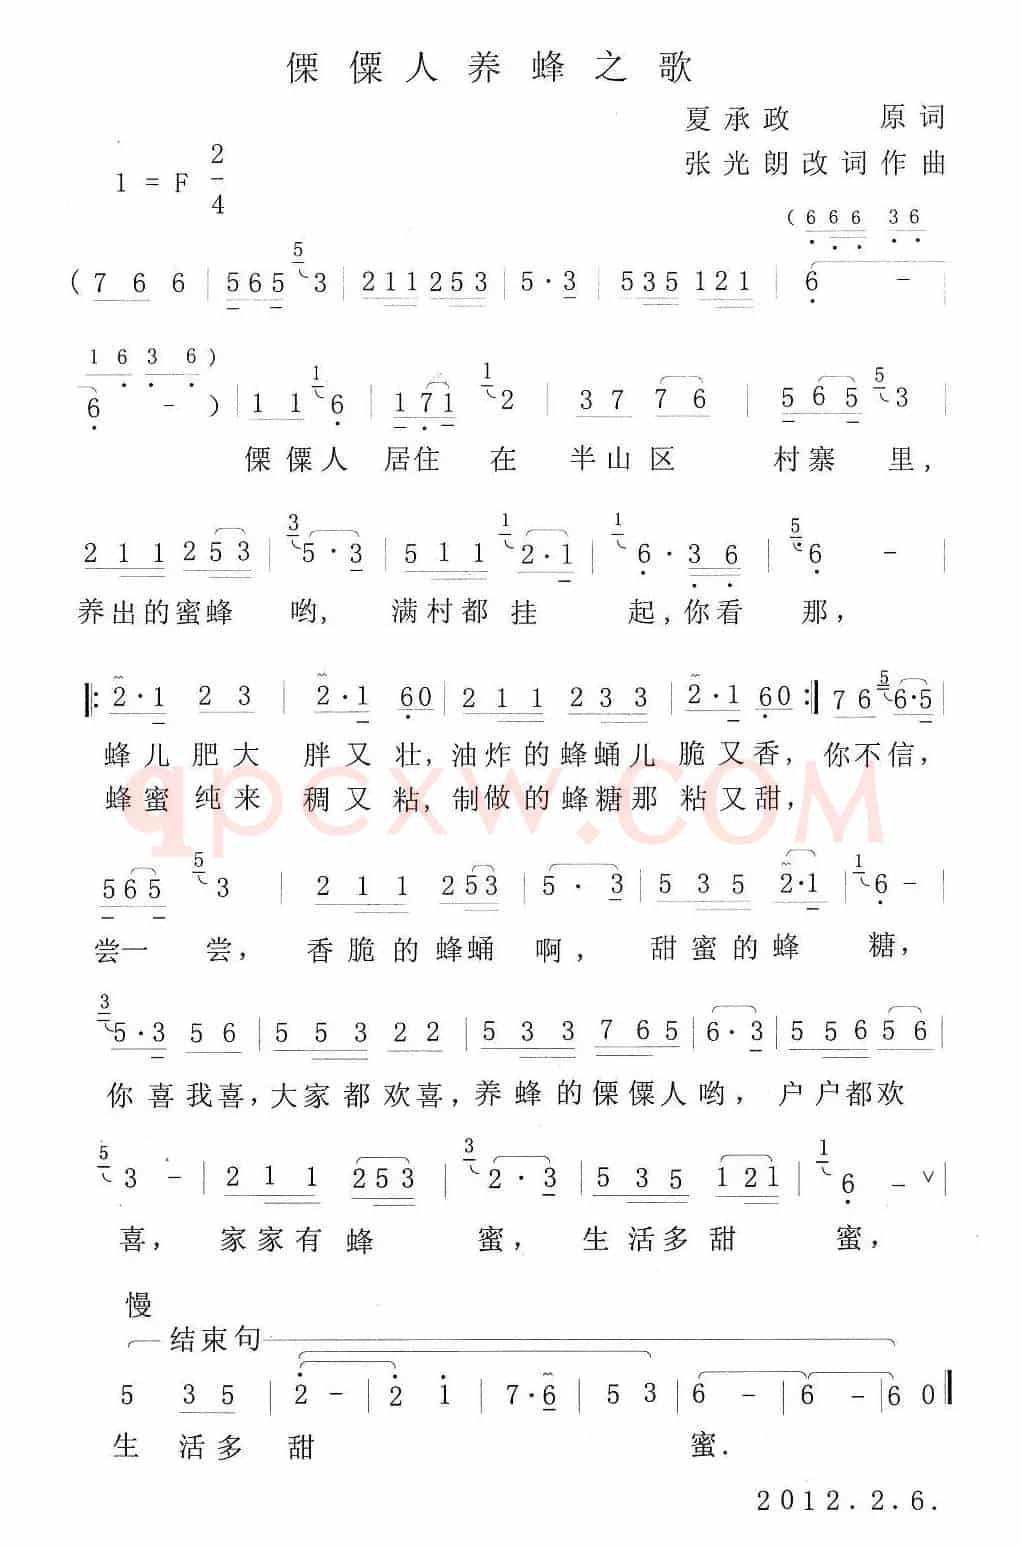 傈僳人养蜂之歌
夏承政 原词
张光朗改词作曲
1=F 2/4
(6 6 6 3 6
(7 6 6 | 5 6 5 5 3 | 2 1 1 2 5 3 | 5·3 | 5 3 5 1 2 1 | 6 -
1 6 3 6)
6 -) | 1 1 1 6 | 1 7 1 1 2 | 3 7 7 6 | 5 6 5 5 3 |
傈僳人 居住 在 半山区 村寨 里,
2 1 1 2 5 3 | 3 5·3 | 5 1 1 1 2·1 | 1 6·3 6 | 5 6 - |
养出的蜜蜂 哟, 满村都挂 起,你看 那,
‖: 2·1 2 3 | 2·1 6 0 | 2 1 1 2 3 3 | 2·1 6 0 :‖ 7 6 5 6·5 |
蜂儿肥大 胖又壮,油炸的蜂蛹儿 脆又香,你不信,
蜂蜜纯来 稠又粘,制做的蜂糖那 粘又甜,
5 6 5 5 3 | 2 1 1 2 5 3 | 5·3 | 5 3 5 2·1 | 1 6 - |
尝一 尝, 香脆的蜂蛹 啊, 甜蜜的蜂 糖,
3 5·3 5 6 | 5 5 3 2 2 | 5 3 3 7 6 5 | 6·3 | 5 5 6 5 6 |
你喜我喜,大家都欢喜,养蜂的傈僳人哟, 户户都欢
5 3 - | 2 1 1 2 5 3 | 3 2·3 | 5 3 5 1 2 1 | 1 6 - ∨ |
喜, 家家有蜂 蜜, 生活多甜 蜜,
慢
结束句
5 3 5 | 2 - | 2 1 | 7·6 | 5 3 | 6 - | 6 - | 6 0 ‖
生 活多 甜 蜜.
2012.2.6.
qpcxw.COM